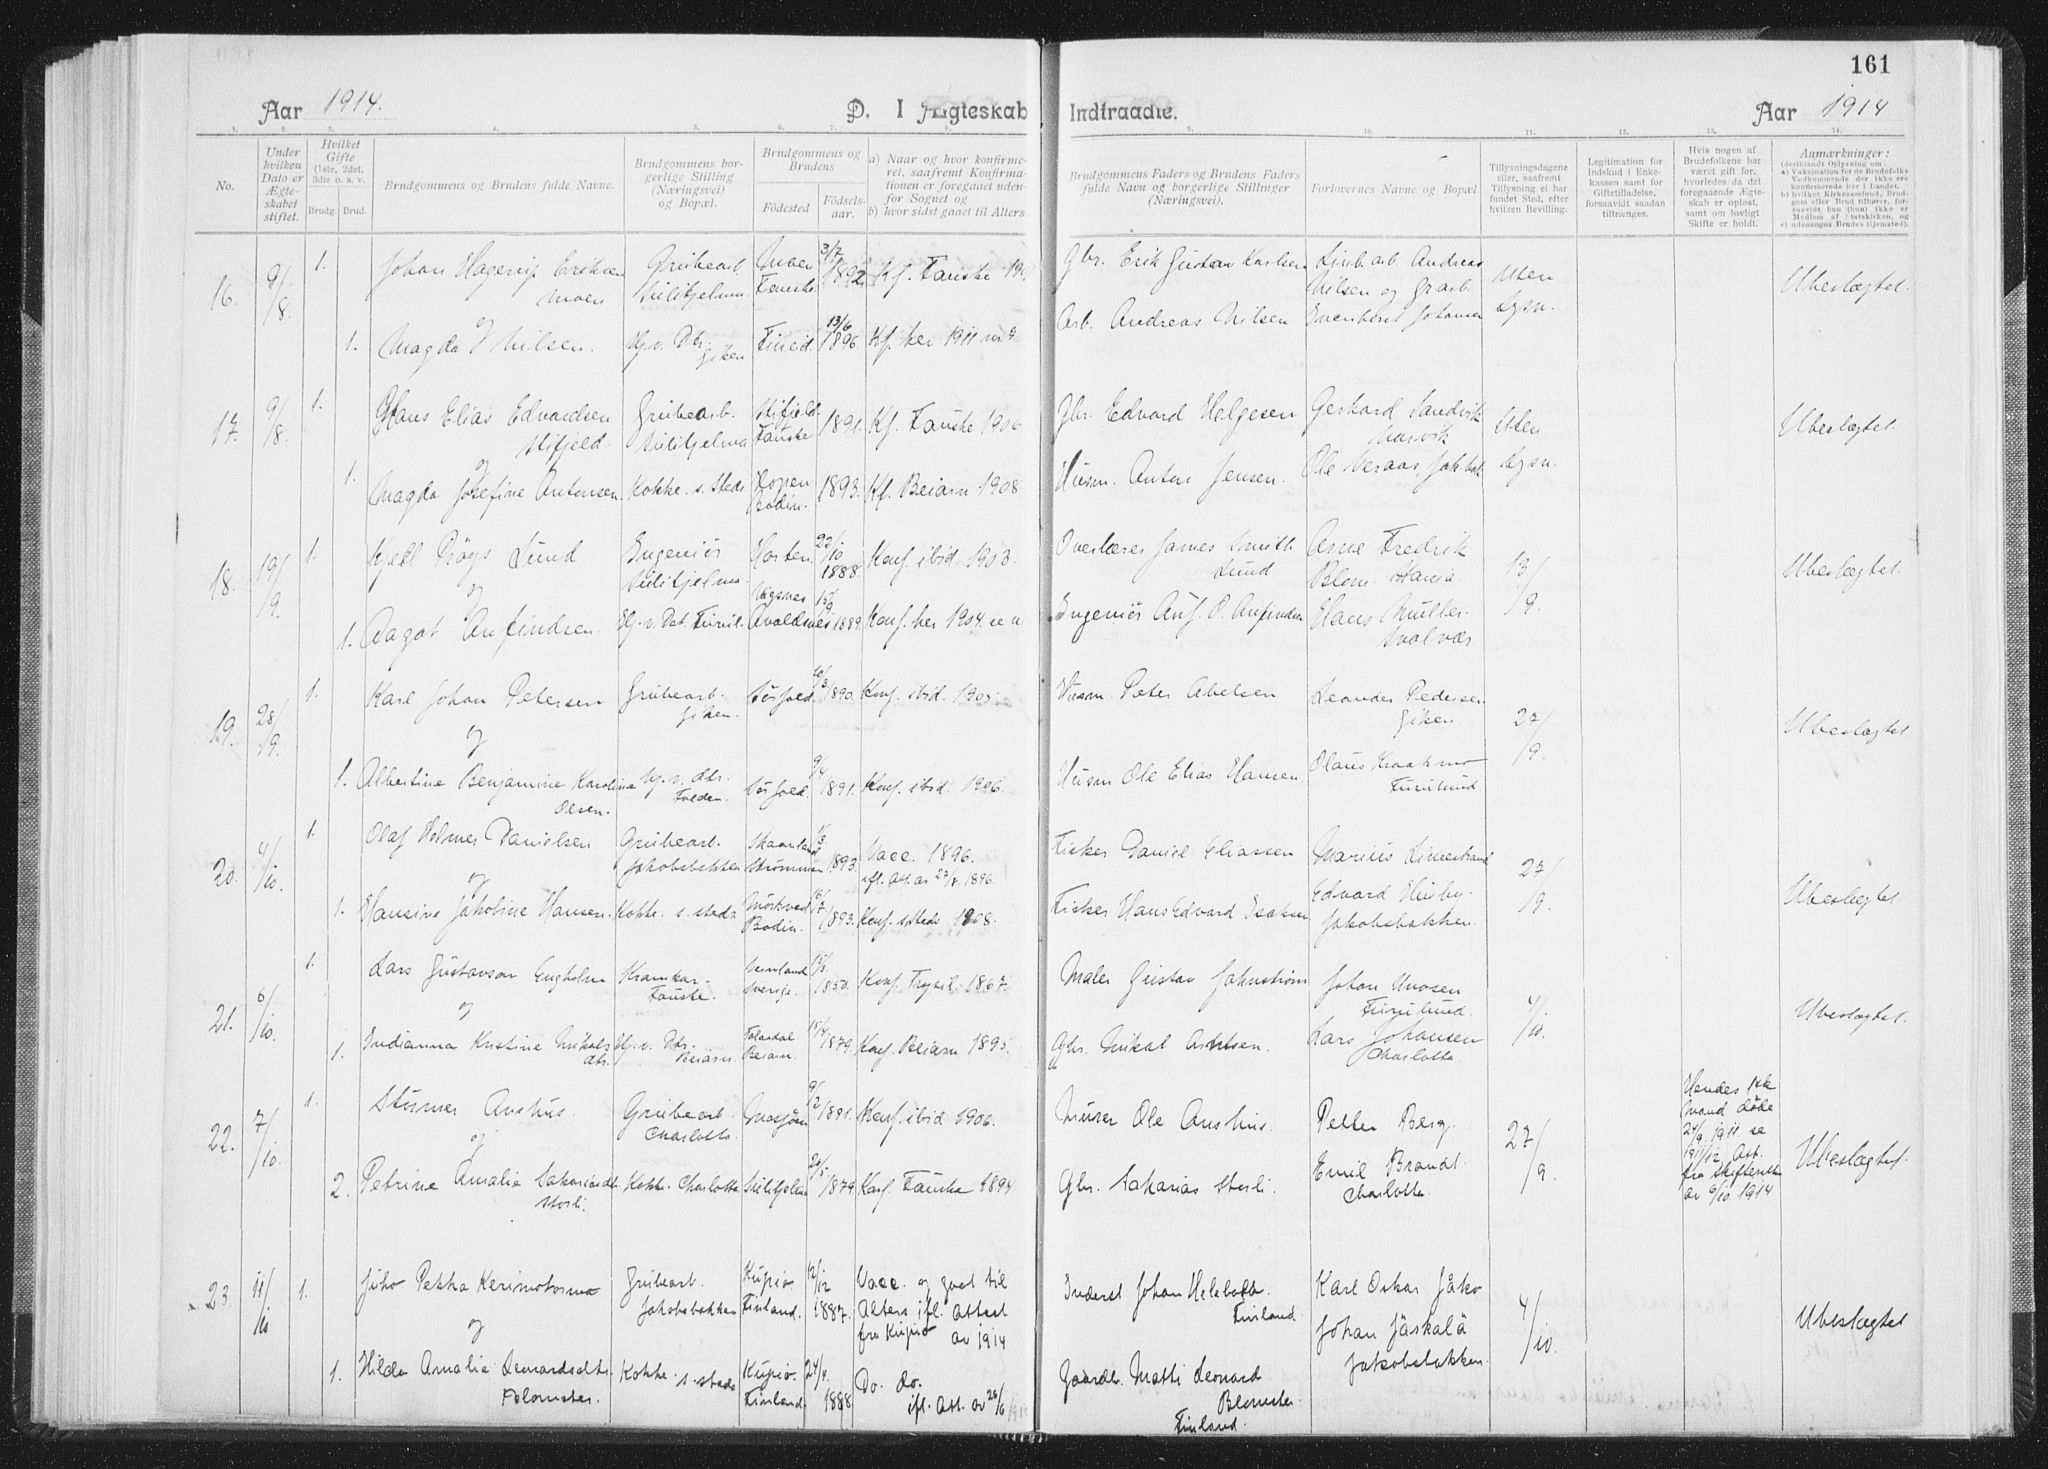 161
Aar 1914. D. I Ægteskab Indtraadte. Aar 1914
1. 2. 3. 4. 5. 6. 7. 8. 9. 10. 11. 12. 13. 14.
No.
Under hvilken Dato er Ægteskabet stiftet.
Hvilket Gifte (1ste, 2det, 3die o. s. v.
Brudg. Brud.
Brudgommens og Brudens fulde Navne.
Brudgommens borgerlige Stilling (Næringsvei) og Bopæl.
Brudgommens og Brudens
Fødested Fødselsaar.
a) Naar og hvor konfirmeret, saafremt Konfirmationen er foregaaet udenfor Sognet og
b) hvor sidst gaaet til Alters
Brudgommens Faders og Brudens Faders fulde Navn og borgerlige Stillinger (Næringsvei).
Forlovernes Navne og Bopæl
Tillysningsdagene eller, saafremt Tillysning ei har fundet Sted, efter hvilken Bevilling.
Legitimation for Indskud i Enkekassen samt for Giftetilladelse, forsaavidt saadan tiltrænges.
Hvis nogen af Brudefolkene har været gift før, hvorledes da det foregaaende Ægteskab er opløst, samt om lovligt Skifte er holdt.
Anmærkninger:
(deriblandt Oplysning om:
a) Vakcination for de Brudefolks Vedkommende der ikke ere konfirmerede her i Landet.
b) hvilket Kirkesamfund, Brudgom eller Brud tilhører, forsaavidt han (hun) ikke er Medlem af Statskirken, og
c) udensogns Brudes Hjemsted).
16. 9/8. 1. Johan Hagerup Eriksen Moen Grubearb. Sulitjelma Moen Fauske 3/7 1892 Kf. Fauske
Gbr. Erik Gustav Karlsen Andreas Nilsen og Uten Lysn. Ubeslægtet.
og
1. Magda Nilsen. Hj.v. Dtr. Giken Fineid. 13/6 1896. Kf. her 1911
Arb. Andreas Nilsen Johansen
17. 9/8. 1. Hans Elias Edvardsen Stifjeld. Grubearb. Sulitjelma Stifjeld Fauske 1891. Kf. Fauske 1906
Gbr. Edvard Helgesen Gerhard Sandvik Uten Lysn. Ubeslægtet.
og
1. Magda Josefine Antonsen Kokke s. steds Hopen Bodin. 1893. Kf. Beiarn 1908
Husm. Anton Jensen. Ole
18. 19/9. 1. Kjell Lund Ingeniør Sulitjelma Horten 22/10 1888. Konf. ibid. 1903.
Overlærer James Smith Lund Arne Fredrik Blom. 13/9. Ubeslægtet.
og
1. Aagot Anfindsen Hj.v. Dat. Furul. Vagsnes Avaldsnes 15/9 1889. Konf. her 1904.
Ingeniør Anf. O. Anfindsen Hans Müller. Svolvær
19. 28/9. 1. Karl Johan Petersen Grubearb. Giken. Sørfold. 1890. Konf. ibid. 1905.
Husm. Peter Abelsen Leander Pedersen Giken. 27/9. Ubeslægtet
og
1. Albertine Benjamine Karoline Olsen. Hj.v. dtr. Folden. Sørfold. 9/4 1891. Konf. ibid. 1906.
Husm. Ole Elias Hansen Olaus Kraakmo Furulund.
20. 4/10. 1. Olaf Holmer Danielsen Grubearb. Jakobsbakken Skaanland Strømmen 1893. Vacc. 1896. ifl. Att. av 1896.
Fisker Daniel Eliassen Marius 27/9. Ubeslægtet.
og
1. Hansine Jakobine Hansen. Kokke. s. steds Mørkved Bodin. 16/7 1893. Konf. s. steds 1908.
Fisker Hans Edvard Isaksen Edvard Husby. Jakobsbakken.
21. 6/10. 1. Lars Gustavson Engholm Fauske. Vermland Sverige. 1850. Konf. Trysil 1867.
Maler Gustav Johan Furulund. 4/10. Ubeslægtet.
og
1. Indianna Kristine Mikals dtr. Hj.v. Dtr. Beiarn. Tolaadal Beiarn. 15/4 1879. Konf. Beiarn 1895.
Gbr. Mikal Arntsen. Lars Johansen Charlotta
22. 7/10. 1. Sturner Aushus. Grubearb. Charlotta. Mosjøen 9/2 1891. Konf. ibid 1906.
Murer Ole Aushus. Petter Berg. 27/9. Hendes 1ste Mand døde 24/9 1911 se 1911/12. Att. fra Skifteret av 6/10. 1914 Ubeslægtet.
og
2. Petrine Amalie Sakariasdtr. Storli. Kokke. Charlotta Sulitjelma 1879 Konf. Fauske 1894
Gbr. Sakarias Storli. Emil Brandt. Charlotta.
23 11/10 1. Juho Pekka Grubearb. Jakobsbakken Kupio. Finland. 12/12 1887. Vacc. og gaat til Alters ifl. Attest fra Kupio av 1914
Inderst Johan Finland Karl Oskar 4/10. Ubeslægtet
og
1. Hilda Amalie Leonardsdtr. Blomster. Kokke s. steds Kupio. Finland. 1888 Do. do. ifl. Att. av 26/6
Gaardbr. Matti Leonard Blomster Finland. Johan Jäskälä Jakobsbakken.